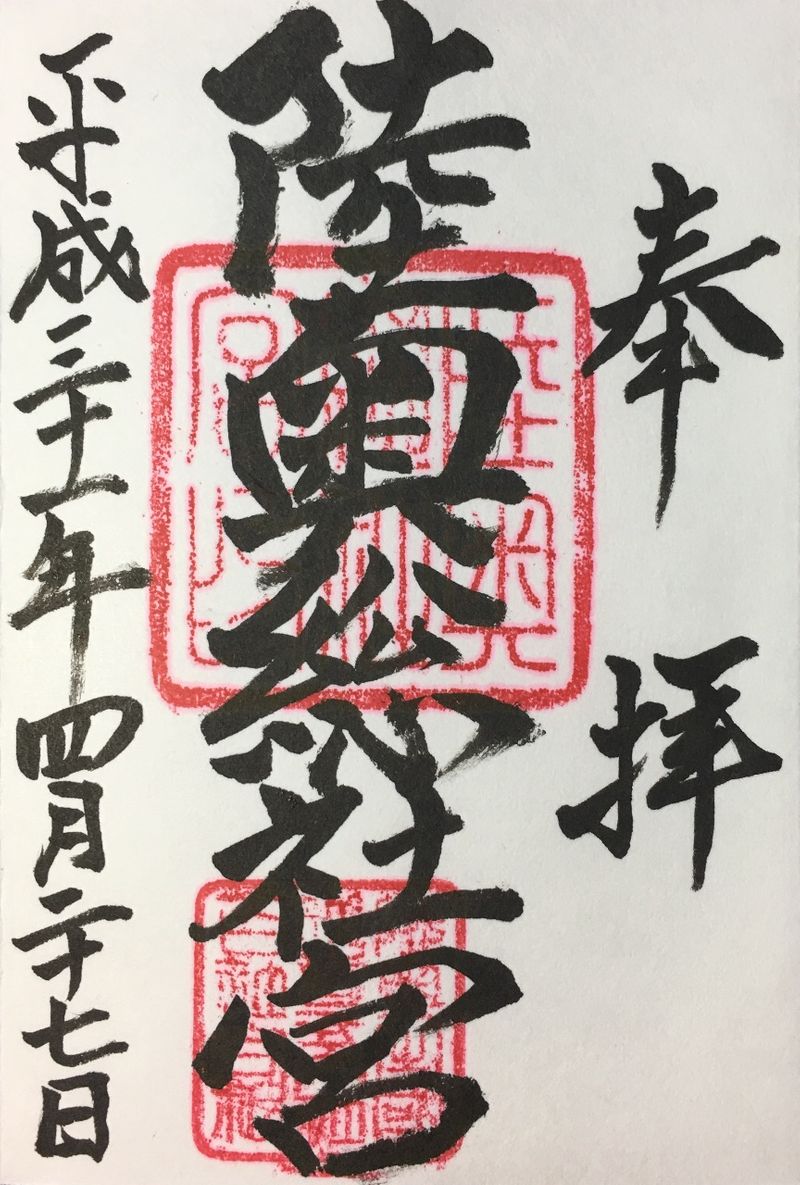 奉拝
陸奥総社宮
平成三十一年四月二十七日